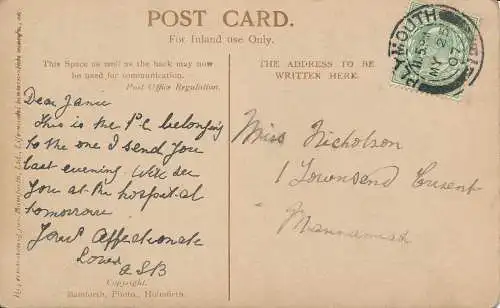 POST CARD.
For Inland use Only.
This Space as well as the back may now
be used for communication.
Post Office Regulation.
THE ADDRESS TO BE
WRITTEN HERE.
PLYMOUTH
MY 25
07
Dear Janie
This is the P.C belonging
to the one I send you
last evening. Will see
you at the hospital
tomorrow
Yours Affectionate
Lover
ASB
Miss Nicholson
1 Townsend Cresent
Mannamead
Copyright.
Bamforth, Photo., Holmfirth.